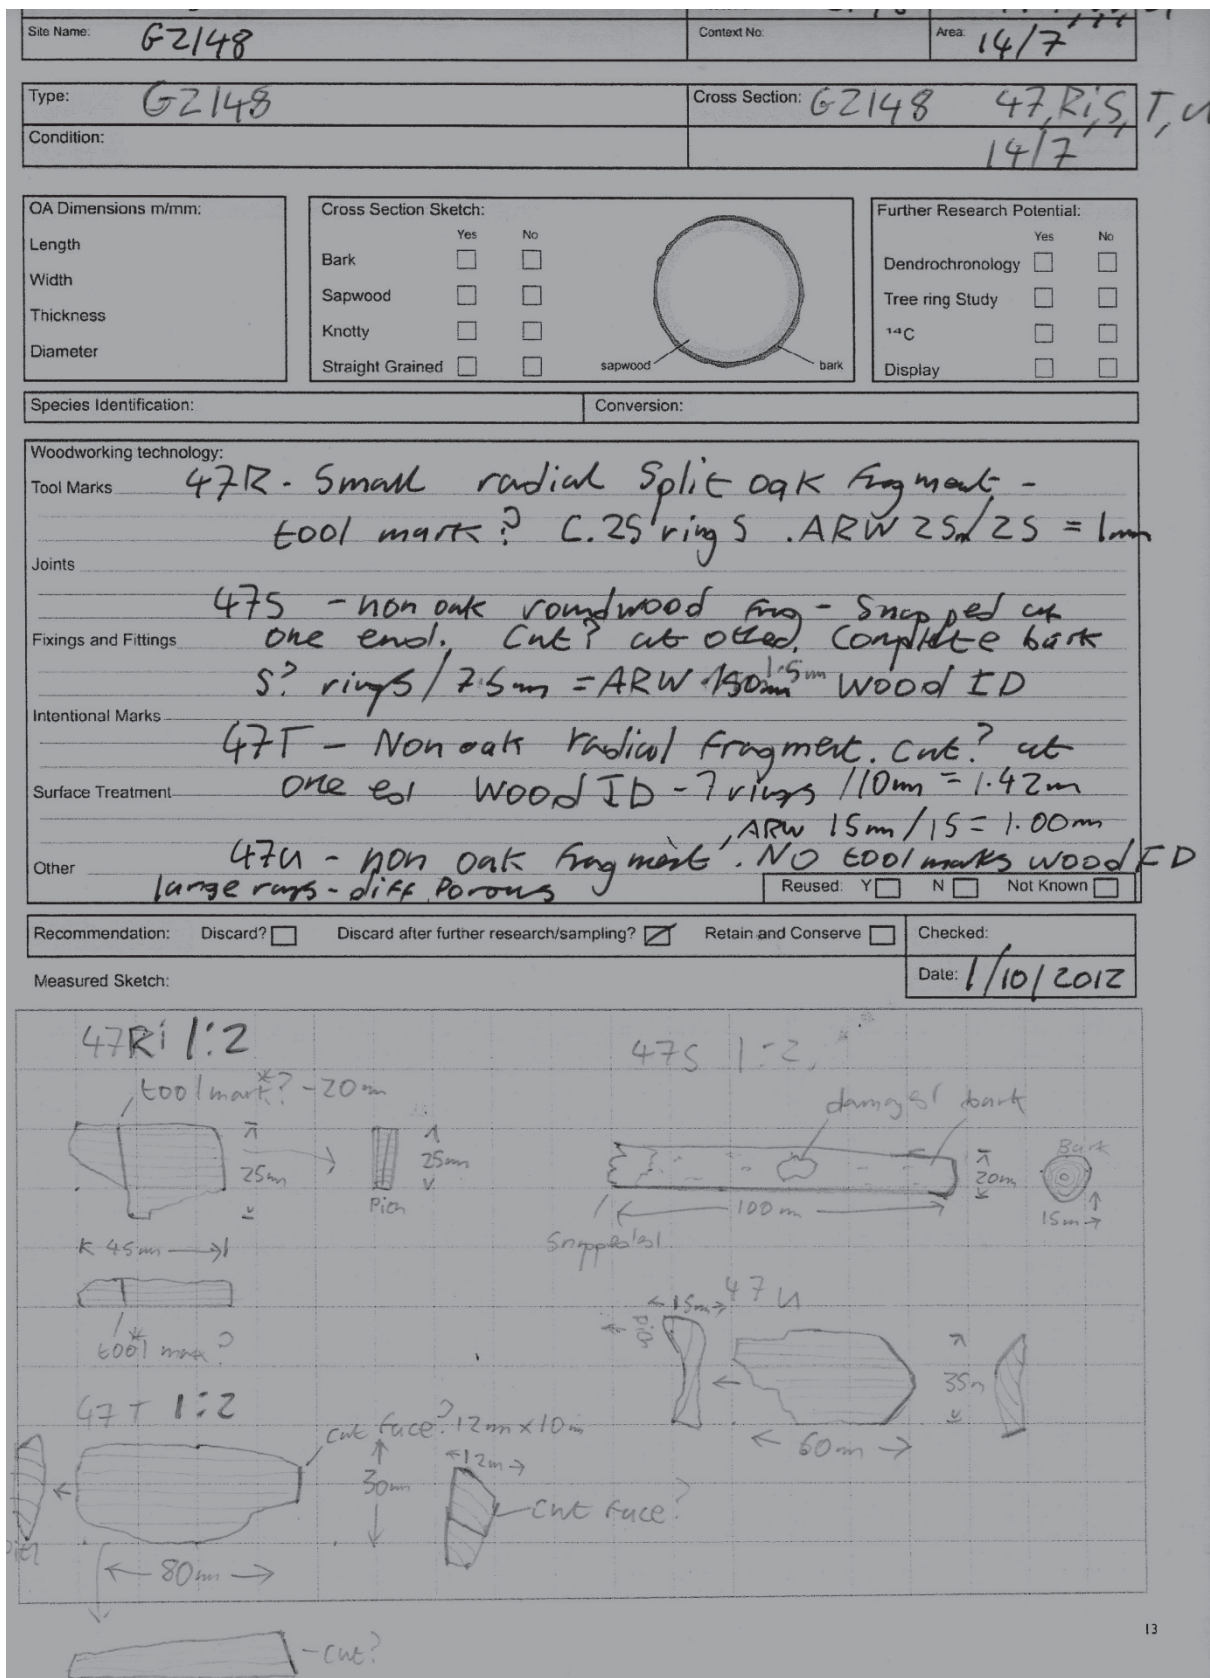 Site Name: G2148 Context No: Area: 14/7
Type: G2148 Cross Section: G2148 47,Ri,S,T,U
Condition: 14/7
OA Dimensions m/mm:
Length
Width
Thickness
Diameter
Cross Section Sketch:
Yes No
Bark
Sapwood
Knotty
Straight Grained
sapwood bark
Further Research Potential:
Yes No
Dendrochronology
Tree ring Study
14C
Display
Species Identification: Conversion:
Woodworking technology:
Tool Marks 47R - Small radial Split oak fragment -
tool mark? C.25 rings .ARW 25/25 = 1mm
Joints
47S - non oak roundwood frag - Snapped at
Fixings and Fittings one end. Cut? at other. Complete bark
5? rings / 7.5mm = ARW 1.5mm Wood ID
Intentional Marks
47T - Non oak radial fragment. Cut? at
Surface Treatment one end Wood ID - 7 rings /10mm = 1.42m
, ARW 15mm/15 = 1.00mm
Other 47U - non oak fragment. NO tool marks wood ID
large rays - diff. Porous
Reused: Y N Not Known
Recommendation: Discard? Discard after further research/sampling? Retain and Conserve
Checked:
Measured Sketch: Date: 1/10/2012
47Ri 1:2
tool mark*? - 20m
25mm
25mm
Pith
45mm
tool* mark?
47S 1:2
damaged bark
Bark
20m
100m
15m
Snapped end
47U
15m
Pith
35m
60m
47T 1:2
cut face? 12mm x 10m
12m
30mm
cut face?
80mm
-cut?
13